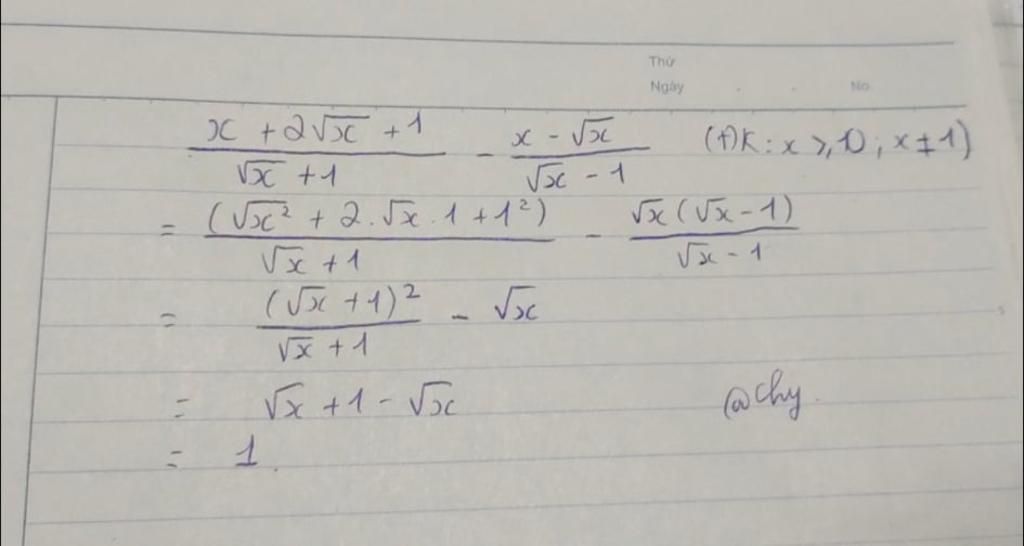 Thứ
Ngày No.
(x + 2√x + 1)/(√x + 1) - (x - √x)/(√x - 1) (ĐK: x ≥ 0; x ≠ 1)
= (√x² + 2.√x.1 + 1²)/(√x + 1) - √x(√x - 1)/(√x - 1)
= (√x + 1)²/(√x + 1) - √x
= √x + 1 - √x @chy.
= 1.